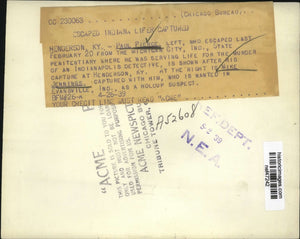 CO 230063 (CHICAGO BUREAU)
ESCAPED INDIANA LIFER CAPTURED
HENDERSON, KY. - PAUL LEFT, WHO ESCAPED LAST
FEBRUARY 20 FROM THE MICHIGAN CITY, IND., STATE
PENITENTIARY WHERE HE WAS SERVING LIFE FOR THE MURDER
OF AN INDIANAPOLIS DETECTIVE, IS SHOWN AFTER HIS
CAPTURE AT HENDERSON, KY. AT THE RIGHT IS
JENNINGS, CAPTURED WITH HIM, WHO IS WANTED IN
EVANSVILLE, IND., AS A HOLDUP SUSPECT.
4-28-39
YOUR CREDIT LINE MUST READ "ACME"
A52608
REF. DEPT.
5-2-39
N.E.A.
"ACME"
ACME NEWSPICTURES
TRIBUNE TOWER
CHICAGO
THIS PICTURE IS SOLD TO YOU FOR